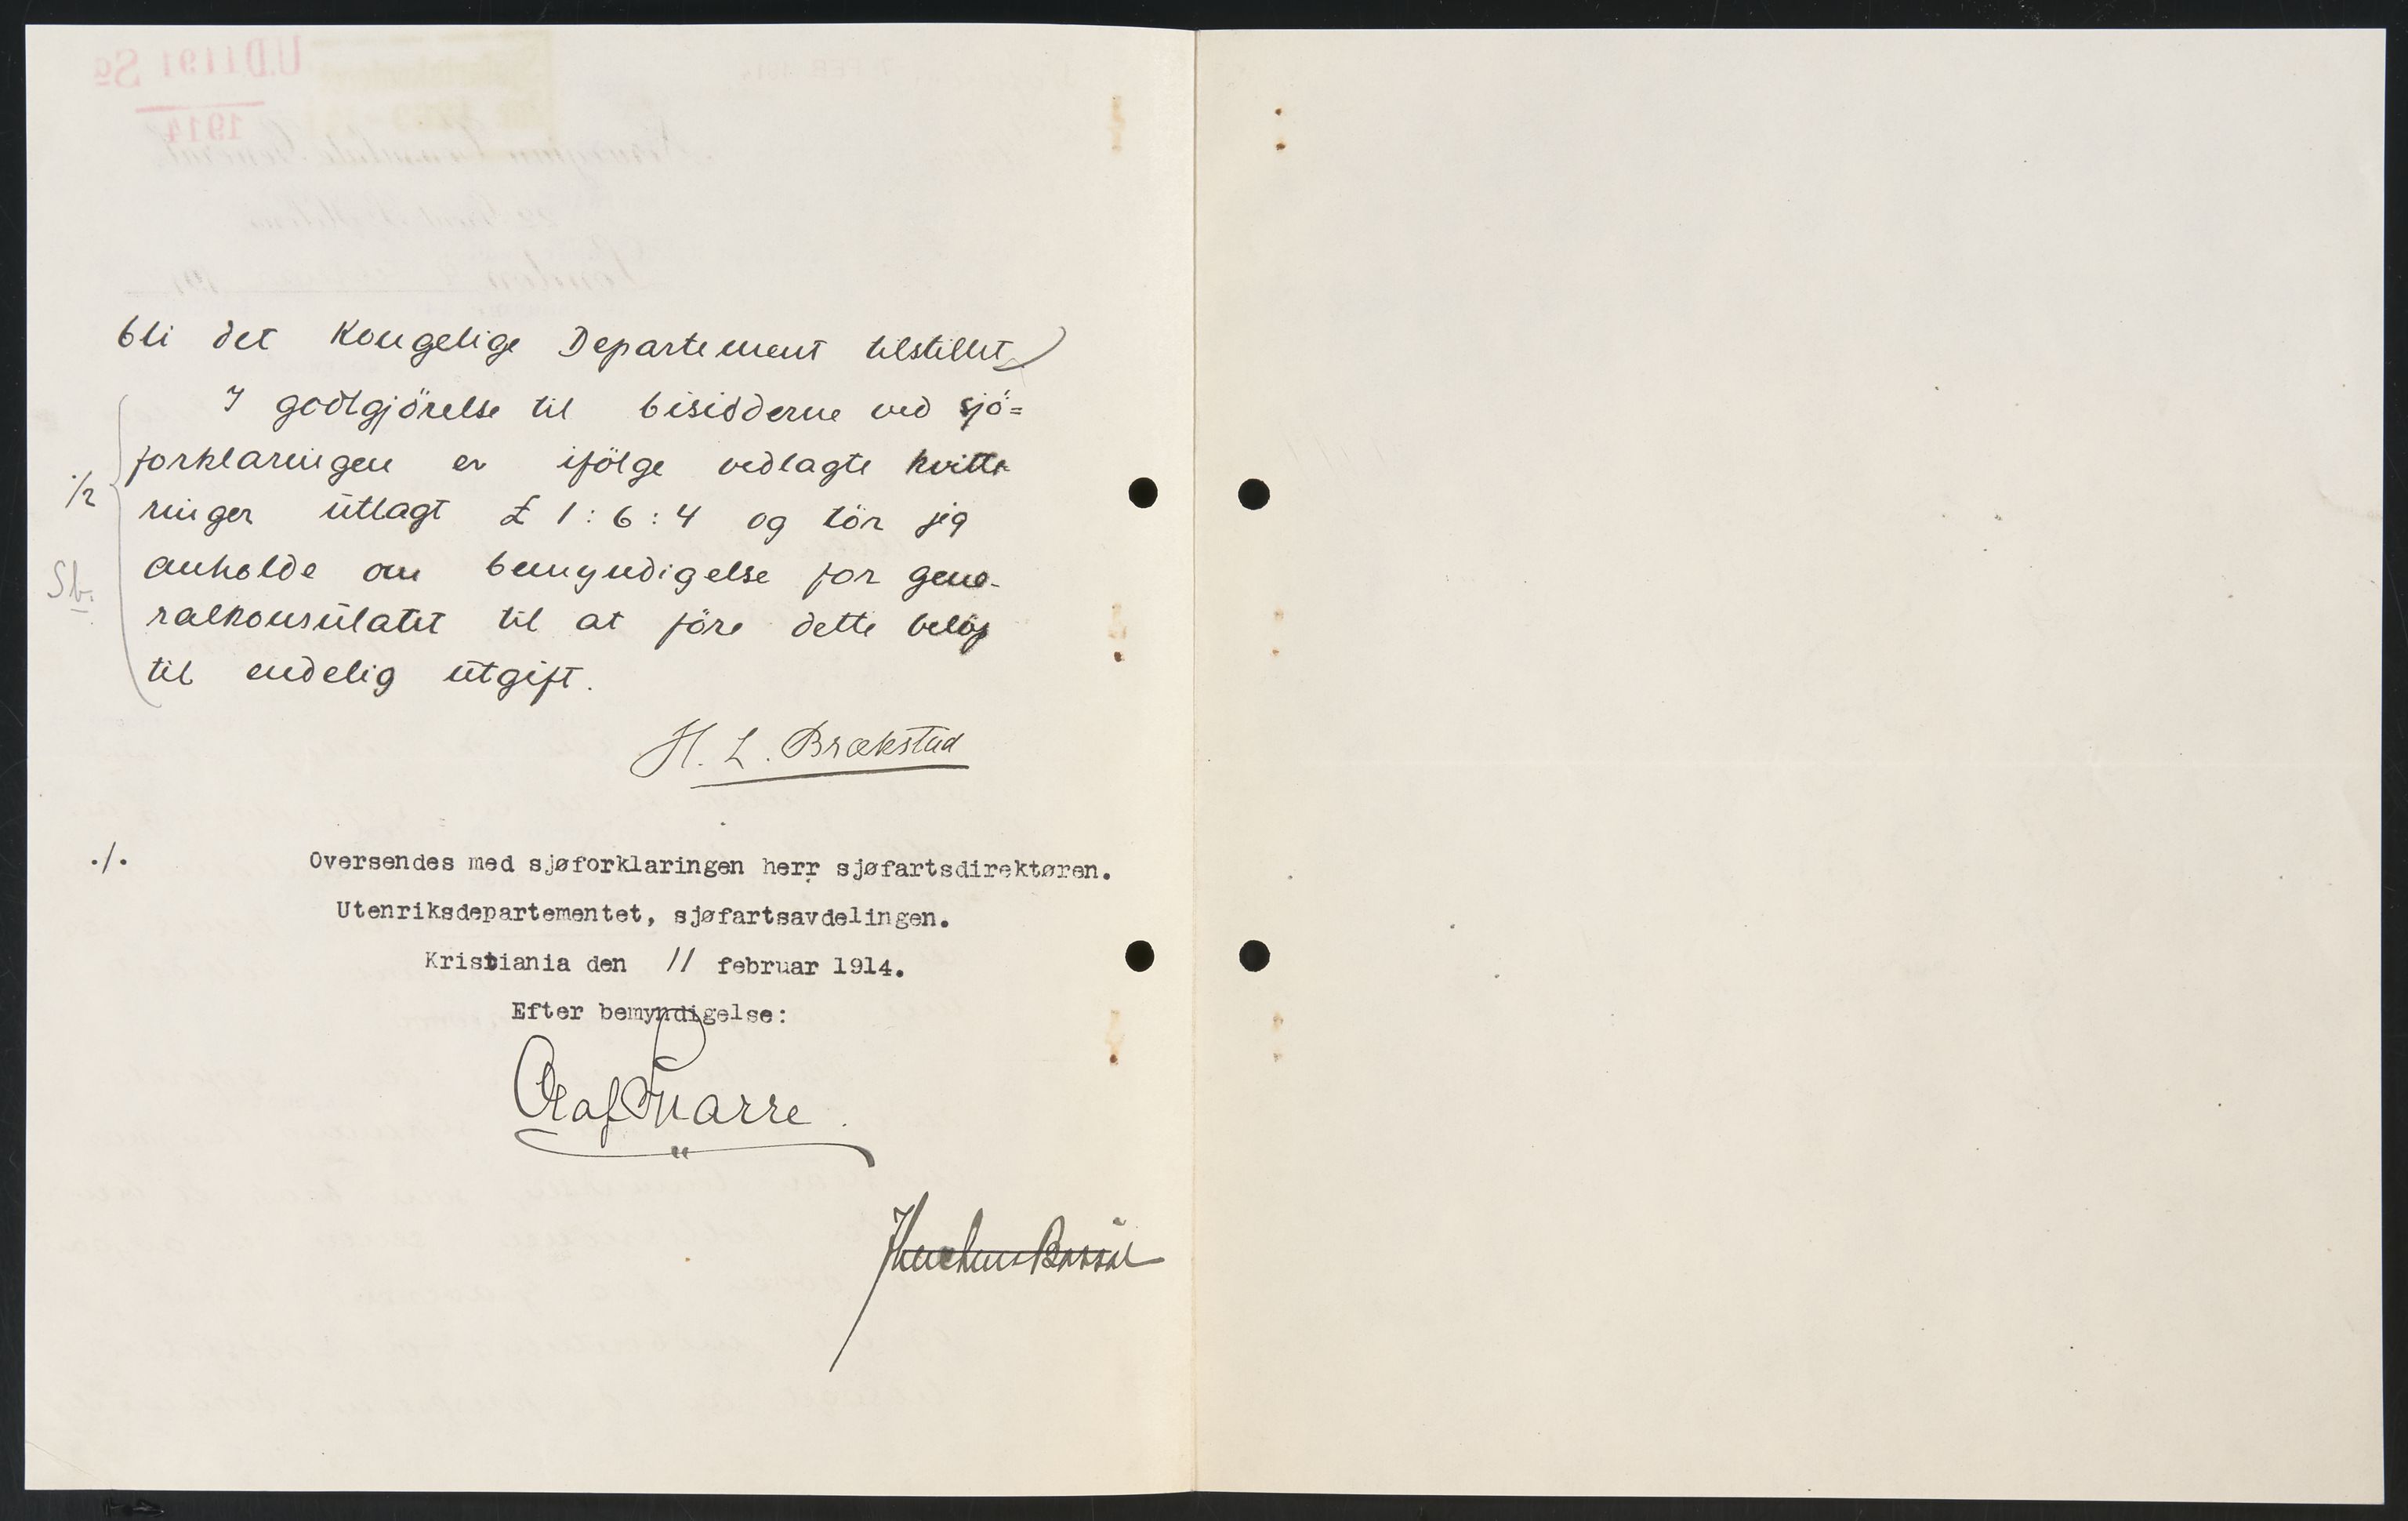 bli det Kongelige Departement tilstillet
I godtgjörelse til bisidderne ved sjö=
forklaringen er ifölge vedlagte kvitte
ringer utlagt £ 1 : 6 : 4 og tör jeg
anholde om bemyndigelse for gene-
ralkonsulatet til at före dette belöp
til endelig utgift.
Sb.
H. L. Brækstad
./.
Oversendes med sjøforklaringen herr sjøfartsdirektøren.
Utenriksdepartementet, sjøfartsavdelingen.
Kristiania den 11 februar 1914.
Efter bemyndigelse:
Olaf